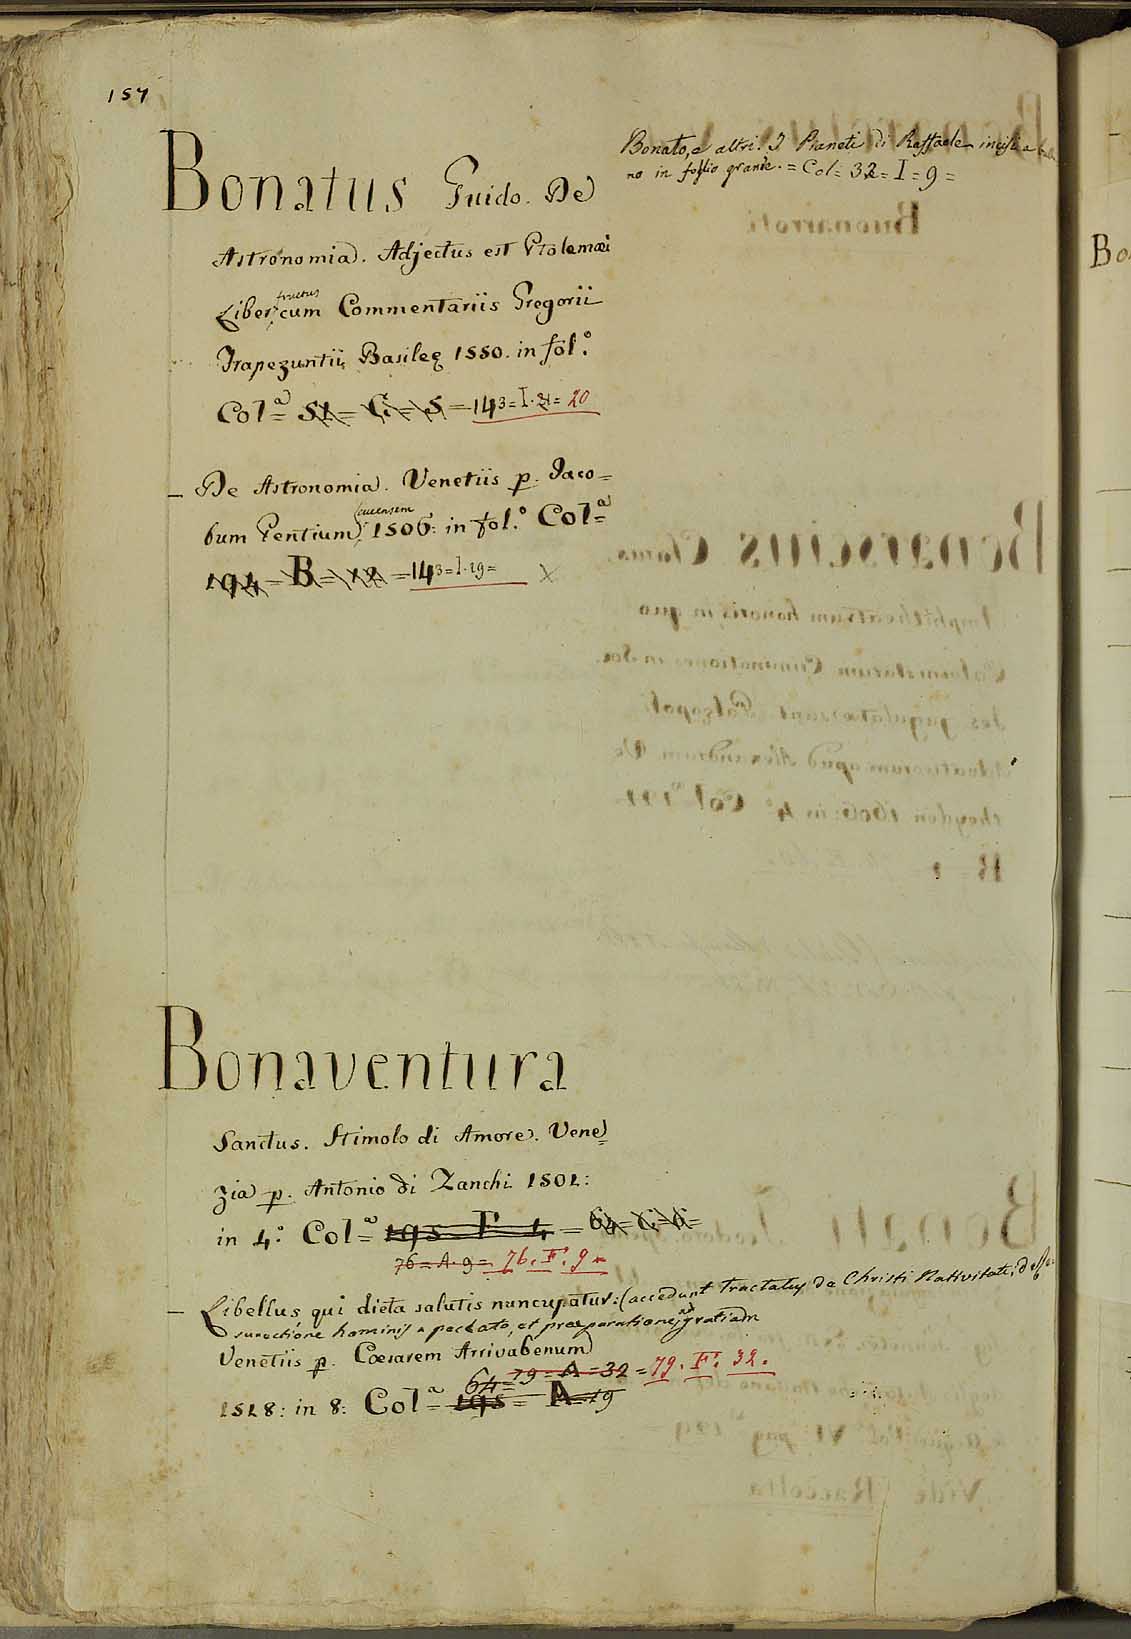 157
Bonatus Guido. De
Astronomia. Adjectus est Ptolemæi
Liber fructus cum Commentariis Gregorii
Trapezuntii Basileę 1550. in fol.°
Col.ª 143=I.21= 20
_ De Astronomia. Venetiis p. Jaco=
bum Pentium Leucensem 1506: in fol.° Col.ª
194=B=12=143=I.19= X
Bonato, e altri. I Pianeti di Raffaele incisi a
no in foglio grande. = Col= 32= I= 9=
Bonaventura
Sanctus. Stimolo di Amore. Vene=
zia p. Antonio di Zanchi 1501:
in 4.° Col.ª = 64=C=6=
76=A.9= 76. F. 9=
_ Libellus qui dieta salutis nuncupatur: (accedunt tractatus de Christi Nativitate, de
surrectione hominis a peccato, et præparatione ad gratiam
Venetiis p. Cæsarem Arrivabenum
64= 79= A=32 =79. F. 32.
1518: in 8: Col.ª 195= A=19
Bo